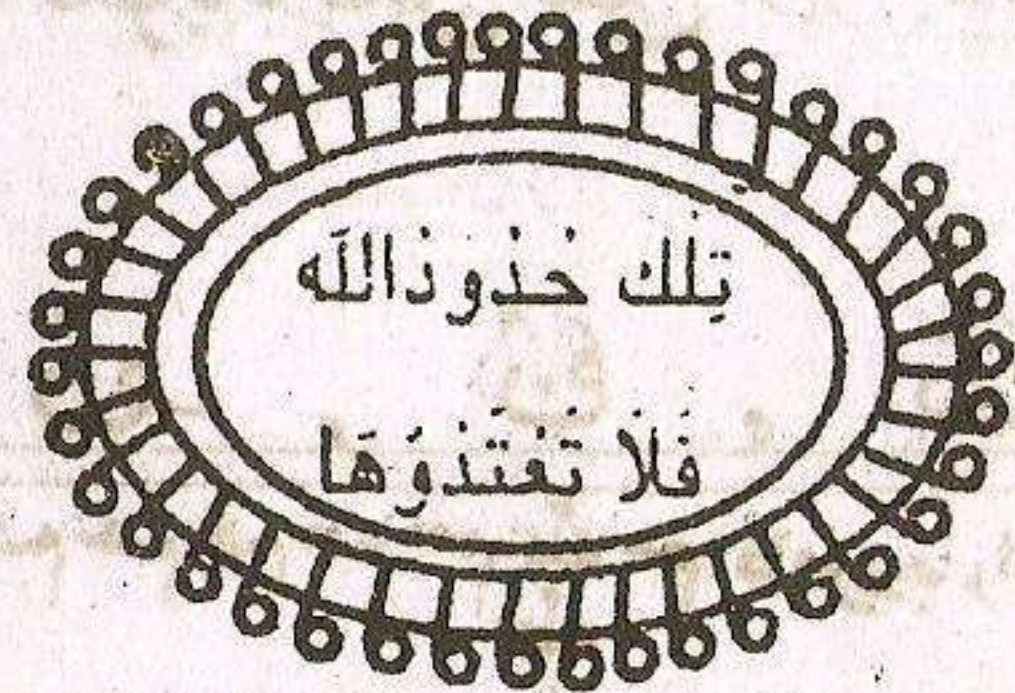 تِلك حُدُودَاللَه
فَلَا تَعْتَدُوْهَا